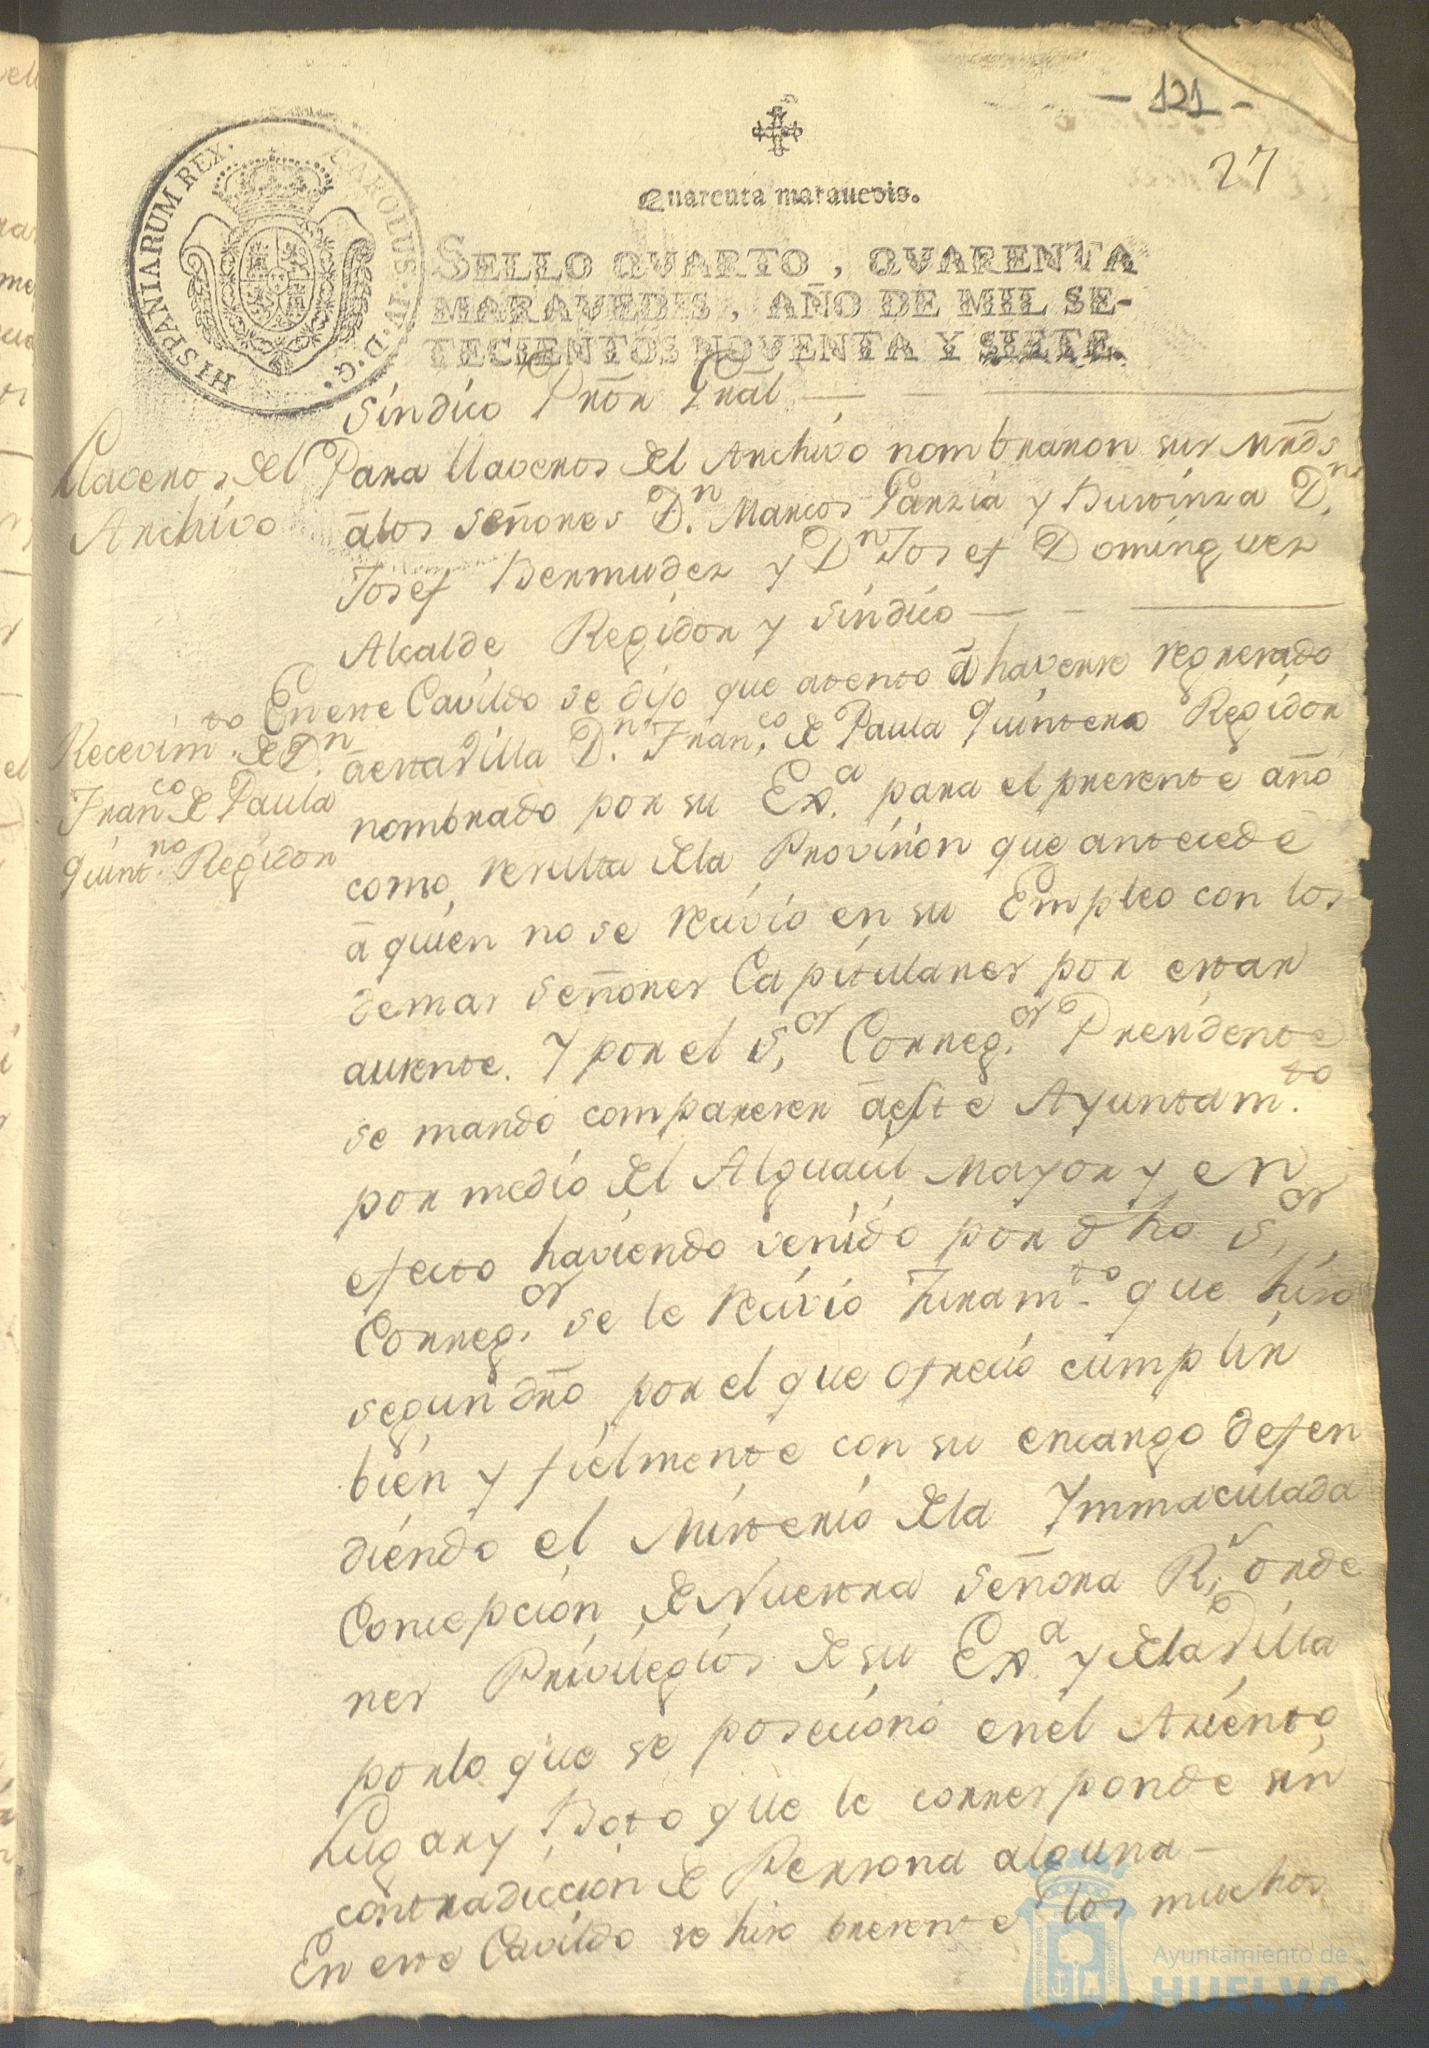 - 121 -
27
Quarenta maravedis.
HISPANIARUM REX. CAROLUS·IV·D·G·
SELLO QVARTO, QVARENTA
MARAVEDIS, AÑO DE MIL SE-
TECIENTOS NOVENTA Y SIETE.
Síndico Prõr Grãl
Llaveros del
Archivo
Para llaveros del Archivo nombraron sus Mrds
âlos señores Dn. Marcos Garzia y Dn.
Josef Bermudez y Dn Josef Dominguez
Alcalde Regidor y Sindico
Recevimto. de Dn
Franco de Paula
Quintno. Regidor
En este Cavildo se dijo que atento â haverse regresado
âesta Villa Dn. Franco. de Paula Quintero Regidor
nombrado por su Exa. para el presente año
como resulta dela Provision que antecede
â quien no se recivio en su Empleo con los
demas señores Capitulares por estar
ausente. Y por el Sor Correg.or Presidente
se mando comparecer âeste Ayuntamto.
por medio del Alguacil Mayor y en
efecto haviendo venido por dho Sor
Correg.or se le recivio Juramto. que hiso
segun dro por el que ofrecio cumplir
bien y fielmente con su encargo defen
diendo el Misterio dela Immaculada
Concepcion de Nuestra Señora Rl. orde
nes Privilegios de su Exa. y dela Villa
porlo que se posecionó enel Aciento
Lugar y Boto que le corresponde sin
contradiccion de Persona alguna
En este Cavildo se hiso presente los muchos
Ayuntamiento de
HUELVA